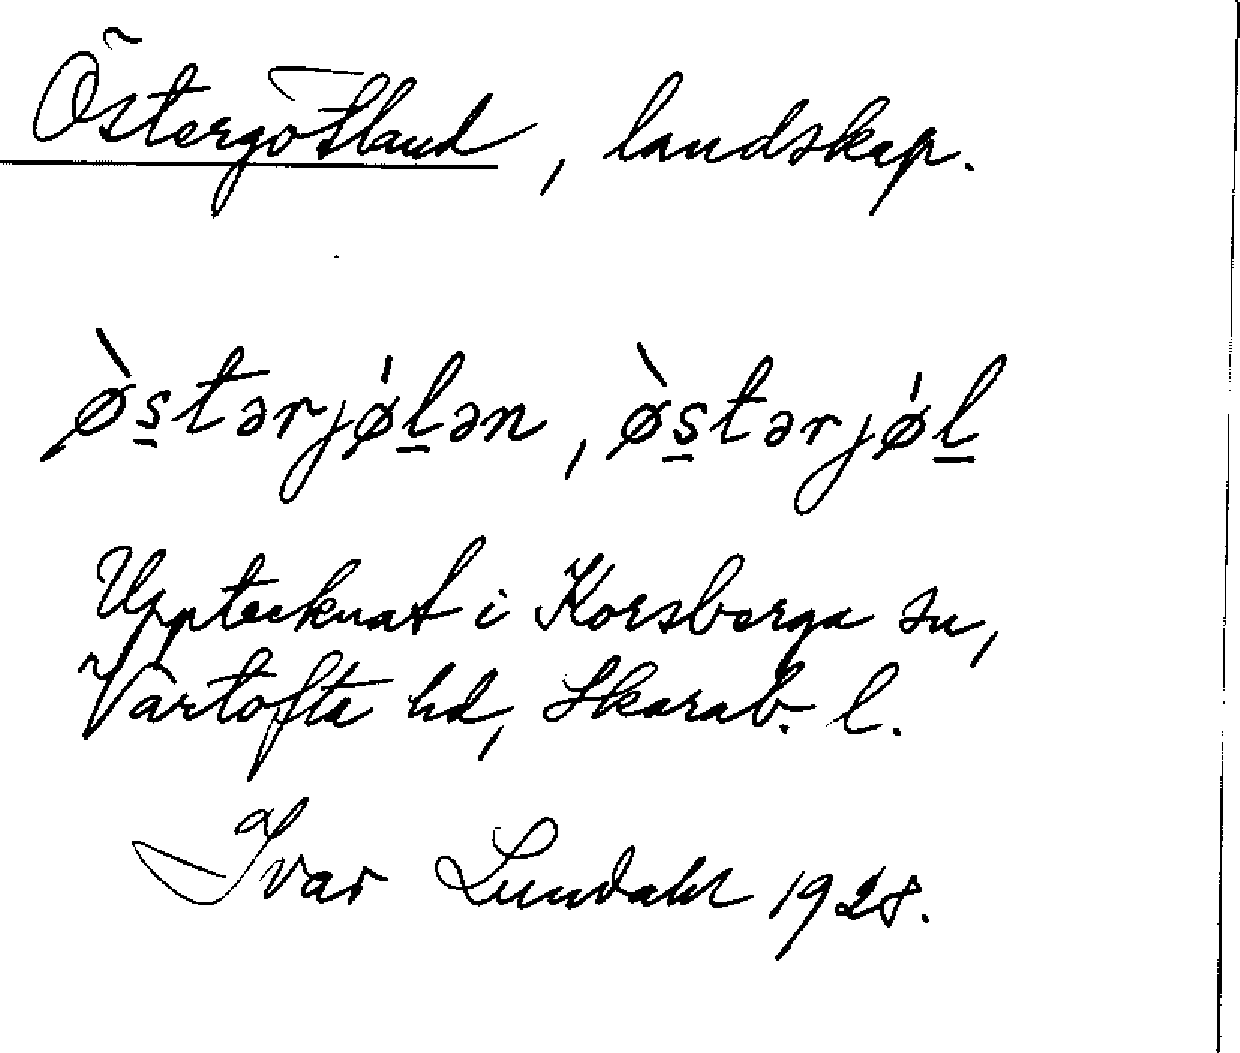 Östergötland, landskap.
ø̀s̲tərjǿl̲ən, ø̀s̲tərjǿl̲
Upptecknat i Korsberga sn,
Vartofta hd, Skarab. l.
Ivar Lundahl 1928.